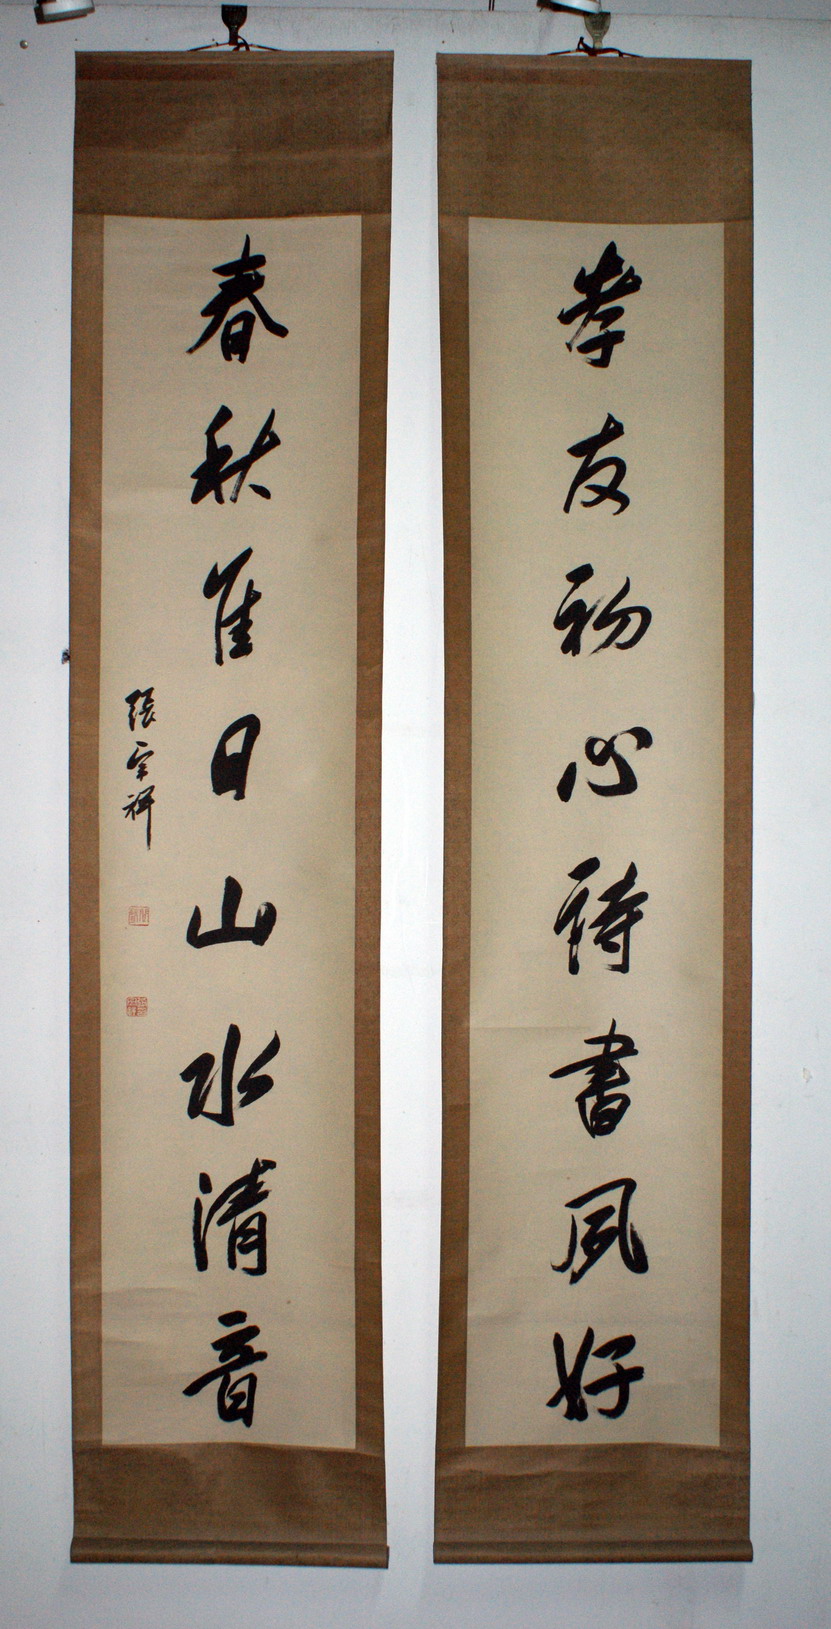 孝友初心詩書夙好
春秋佳日山水清音
張宗祥